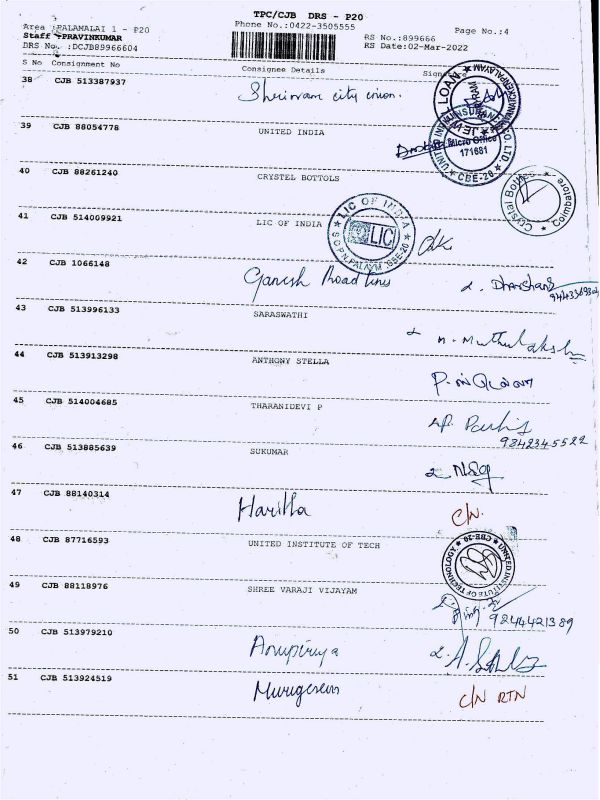 TPC/CJB DRS - P20
Area :PALAMALAI 1 - P20
Phone No.:0422-3505555
Page No.:4
Staff :PRAVINKUMAR
RS No.:899666
DRS No.:DCJB89966604
RS Date:02-Mar-2022
S No Consignment No Consignee Details
38 CJB 513387937 Shriram city union.
39 CJB 88054778 UNITED INDIA
Micro Office
171681
CBE-20
40 CJB 88261240 CRYSTEL BOTTOLS
Crystal Bottles Coimbatore
41 CJB 514009921 LIC OF INDIA
LIC OF INDIA
LIC
42 CJB 1066148 Ganesh Road lines
43 CJB 513996133 SARASWATHI
44 CJB 513913298 ANTHONY STELLA
45 CJB 514004685 THARANIDEVI P
9842345522
46 CJB 513885639 SUKUMAR
47 CJB 88140314 Haritha C/N.
48 CJB 87716593 UNITED INSTITUTE OF TECH
UNITED INSTITUTE OF TECHNOLOGY CBE-20
49 CJB 88118976 SHREE VARAJI VIJAYAM
9244421389
50 CJB 513979210 Anupiriya
51 CJB 513924519 Murugesan C/N RTN